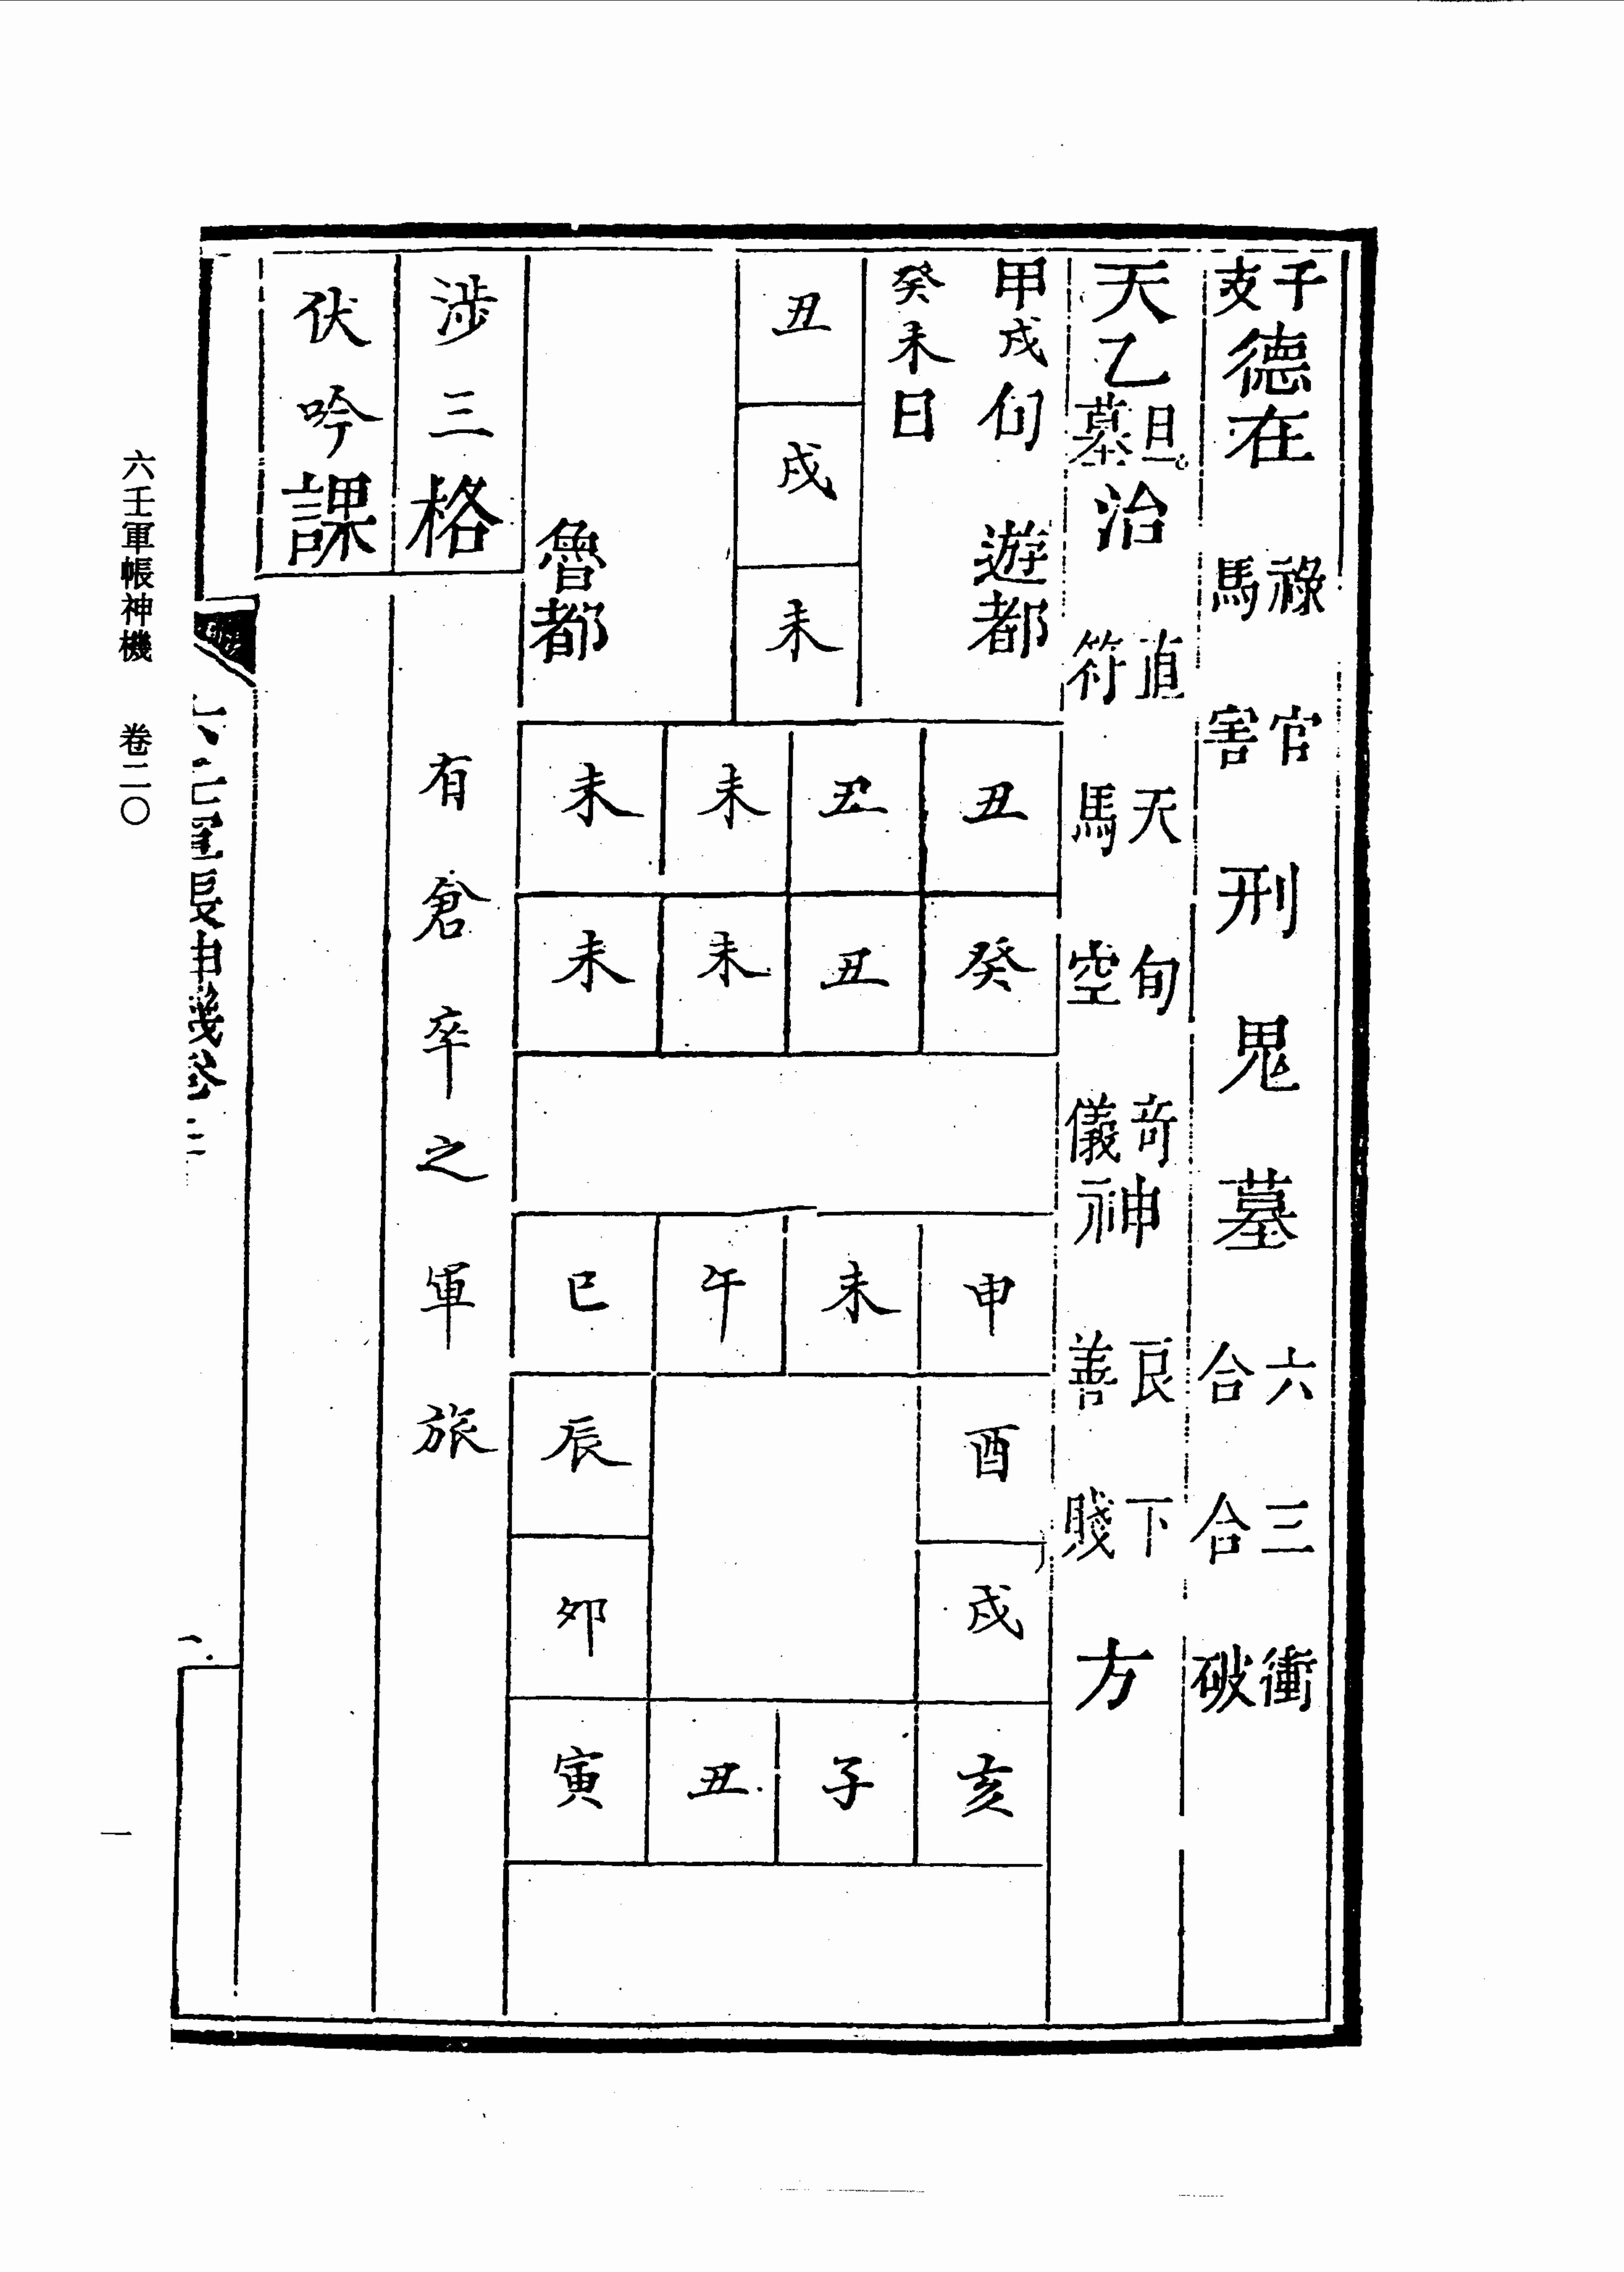 干支德在 祿馬 官害 刑 鬼 墓 六合 三合 衝破
天乙旦墓治 直符 天馬 旬空 奇儀神 良善 下賤 方
甲戌旬 遊都
癸未日
丑
戌
未
魯都
丑 丑 未 未
癸 丑 未 未
申 未 午 巳
酉 辰
戌 卯
亥 子 丑 寅
涉三格
有倉卒之軍旅
伏吟課
六壬軍帳神機 卷二〇
一